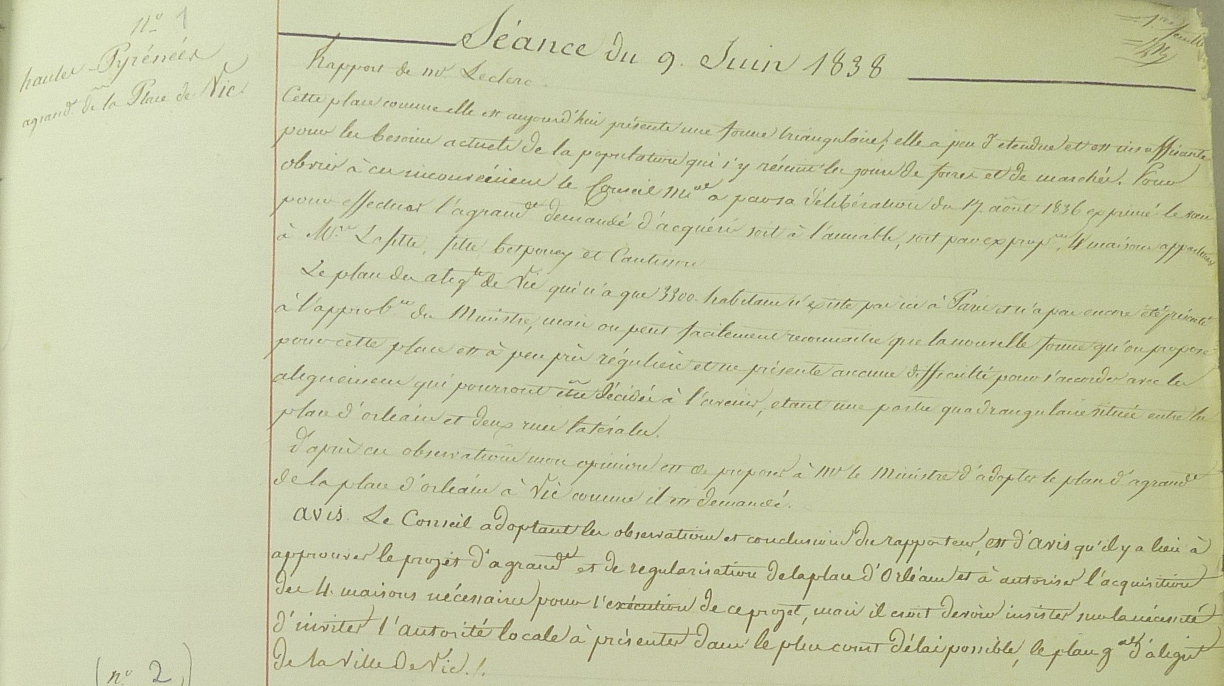 n° 1
hautes-Pyrénées
agrand.nt de la Place de Vic.
1re feuille
Séance du 9. Juin 1838
Rapport de mr Leclerc.
Cette place comme elle est aujourd'hui présente une forme triangulaire; elle a peu d'étendue et est insuffisante
pour les besoins actuels de la population qui s'y réunit les jours de foires et de marchés. Pour
obvier à cet inconvénient le Conseil m.al a par sa délibération du 17 août 1836 exprimé le vœu
pour effectuer l'agrand.nt demandé d'acquérir soit à l'amiable, soit par exprop.on 4 maisons appartenant
à M.rs Lafitte, et
Le plan des alig.ts de Vic qui n'a que 3300 habitans n'existe pas ici à Paris et n'a pas encore été présenté
à l'approb.on du Ministre, mais on peut facilement reconnaitre que la nouvelle forme qu'on propose
pour cette place est à peu près régulière et ne présente aucune difficulté pour s'accorder avec les
alignemens qui pourront être décidés à l'avenir, etant une partie quadrangulaire située entre la
place d'orléans et deux rues latérales.
d'après ces observations mon opinion est de proposer à Mr le Ministre d'adopter le plan d'agrand.nt
de la place d'orléans à Vic comme il est demandé.
avis. Le Conseil adoptant les observations et conclusions du rapporteur, est d'avis qu'il y a lieu à
approuver le projet d'agrand.nt et de regularisation de la place d'Orléans et à autoriser l'acquisition
des 4 maisons nécessaires pour l'exécution de ce projet, mais il croit devoir insister sur la nécessité
d'inviter l'autorité locale à présenter dans le plus court délai possible, le plan g.al d'alignt
de la ville de Vic./.
(n° 2)